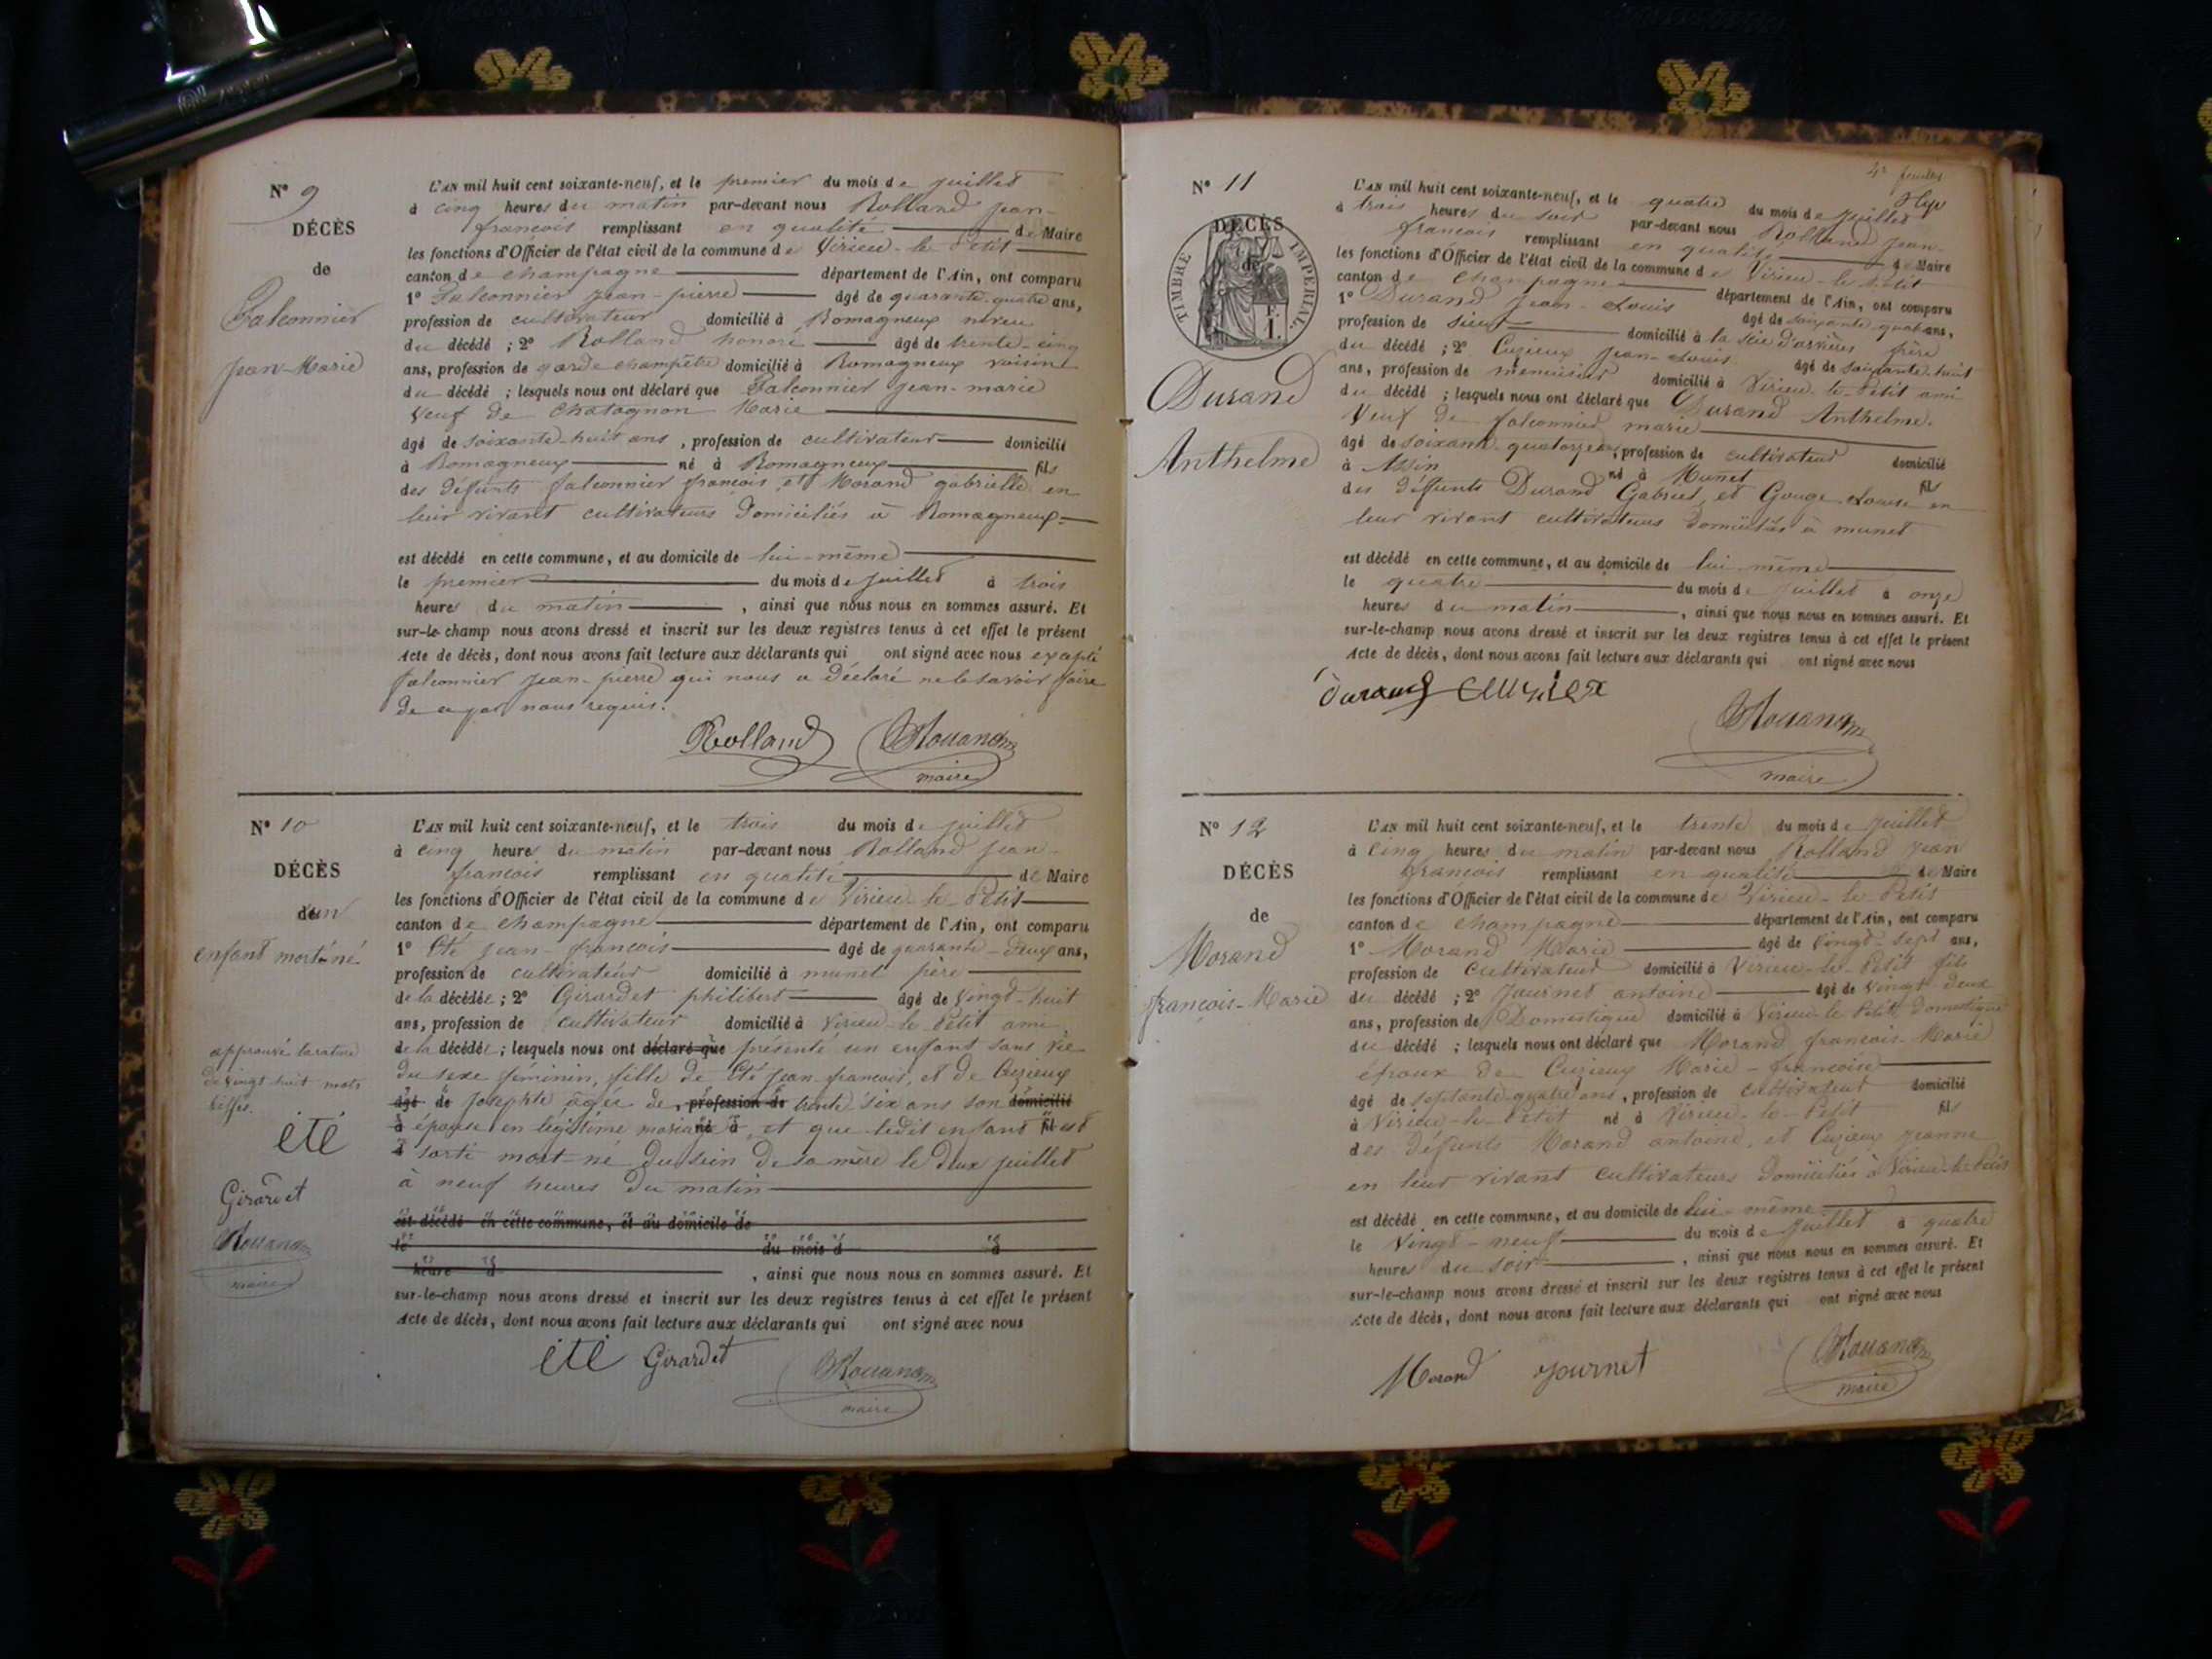 N° 9
DÉCÈS
de
Falconnier
Jean-Marie
L'AN mil huit cent soixante-neuf, et le premier du mois de juillet
à cinq heures du matin par-devant nous Rolland jean-
françois remplissant en qualité de Maire
les fonctions d'Officier de l'état civil de la commune de Virieu-le-Petit
canton de champagne département de l'Ain, ont comparu
1° Falconnier jean-pierre âgé de quarante-quatre ans,
profession de cultivateur domicilié à Romagneux neveu
du décédé ; 2° Rolland honoré âgé de trente-cinq
ans, profession de garde champêtre domicilié à Romagneux voisin
du décédé ; lesquels nous ont déclaré que Falconnier jean-marie
veuf de Chatagnon Marie
âgé de soixante-huit ans, profession de cultivateur domicilié
à Romagneux né à Romagneux fils
des défunts falconnier françois et Morand gabrielle en
leur vivant cultivateurs domiciliés à Romagneux
est décédé en cette commune, et au domicile de lui-même
le premier du mois de juillet à trois
heures du matin, ainsi que nous nous en sommes assuré. Et
sur-le-champ nous avons dressé et inscrit sur les deux registres tenus à cet effet le présent
Acte de décès, dont nous avons fait lecture aux déclarants qui ont signé avec nous excepté
falconnier jean-pierre qui nous a déclaré ne le savoir faire
de ce par nous requis.
Rolland
maire
N° 10
DÉCÈS
d'un
enfant mort-né
approuvé la rature
de vingt huit mots
biffés.
été
Girardet
maire
L'AN mil huit cent soixante-neuf, et le trois du mois de juillet
à cinq heures du matin par-devant nous Rolland jean-
françois remplissant en qualité de Maire
les fonctions d'Officier de l'état civil de la commune de Virieu-le-Petit
canton de champagne département de l'Ain, ont comparu
1° Eté jean-françois âgé de quarante-deux ans,
profession de cultivateur domicilié à munet père
de la décédée ; 2° Girardet philibert âgé de vingt-huit
ans, profession de cultivateur domicilié à Virieu-le-Petit ami
de la décédée ; lesquels nous ont déclaré que présenté un enfant sans vie
du sexe féminin, fille de Eté jean-françois, et de Cuzieux
âgé de josephte âgée de, profession de trente six ans son domicilié
à épouse en légitime mariage né à, et que ledit enfant fil est
d sorti mort-né du sein de sa mère le deux juillet
à neuf heures du matin
est décédé en cette commune, et au domicile de
le du mois d à
heure d, ainsi que nous nous en sommes assuré. Et
sur-le-champ nous avons dressé et inscrit sur les deux registres tenus à cet effet le présent
Acte de décès, dont nous avons fait lecture aux déclarants qui ont signé avec nous
été Girardet
maire
4e feuillet
N° 11
DÉCÈS
de
TIMBRE IMPÉRIAL
Durand
Anthelme
L'AN mil huit cent soixante-neuf, et le quatre du mois de juillet
à trois heures du soir par-devant nous Rolland jean-
françois remplissant en qualité de Maire
les fonctions d'Officier de l'état civil de la commune de Virieu-le-Petit
canton de Champagne département de l'Ain, ont comparu
1° Durand jean-Louis âgé de soixante-quatre ans,
profession de sieur domicilié à la scie d'arvières frère
du décédé ; 2° Cuzieux jean-Louis âgé de soixante-huit
ans, profession de menuisier domicilié à Virieu-le-Petit ami
du décédé ; lesquels nous ont déclaré que Durand Anthelme.
Veuf de falconnier marie
âgé de soixante-quatorze ans, profession de cultivateur domicilié
à Assin né à Munet fils
des défunts Durand Gabriel, et Gouge Louise en
leur vivant cultivateurs domiciliés à munet
est décédé en cette commune, et au domicile de lui-même
le quatre du mois de juillet à onze
heures du matin, ainsi que nous nous en sommes assuré. Et
sur-le-champ nous avons dressé et inscrit sur les deux registres tenus à cet effet le présent
Acte de décès, dont nous avons fait lecture aux déclarants qui ont signé avec nous
Durand Cuzieux
maire
N° 12
DÉCÈS
de
Morand
françois-Marie
L'AN mil huit cent soixante-neuf, et le trente du mois de juillet
à cinq heures du matin par-devant nous Rolland jean
françois remplissant en qualité de Maire
les fonctions d'Officier de l'état civil de la commune de Virieu-le-Petit
canton de champagne département de l'Ain, ont comparu
1° Morand Marie âgé de vingt-sept ans,
profession de cultivateur domicilié à Virieu-le-Petit fils
du décédé ; 2° Journet antoine âgé de vingt-deux
ans, profession de Domestique domicilié à Virieu-le-Petit domestique
du décédé ; lesquels nous ont déclaré que Morand françois-Marie
époux de Cuzieux Marie-françoise
âgé de septante-quatre ans, profession de cultivateur domicilié
à Virieu-le-Petit né à Virieu-le-Petit fils
des défunts Morand antoine, et Cuzieux jeanne
en leur vivant cultivateurs domiciliés à Virieu-le-Petit
est décédé en cette commune, et au domicile de lui-même
le vingt-neuf du mois de juillet à quatre
heures du soir, ainsi que nous nous en sommes assuré. Et
sur-le-champ nous avons dressé et inscrit sur les deux registres tenus à cet effet le présent
Acte de décès, dont nous avons fait lecture aux déclarants qui ont signé avec nous
Morand Journet
maire